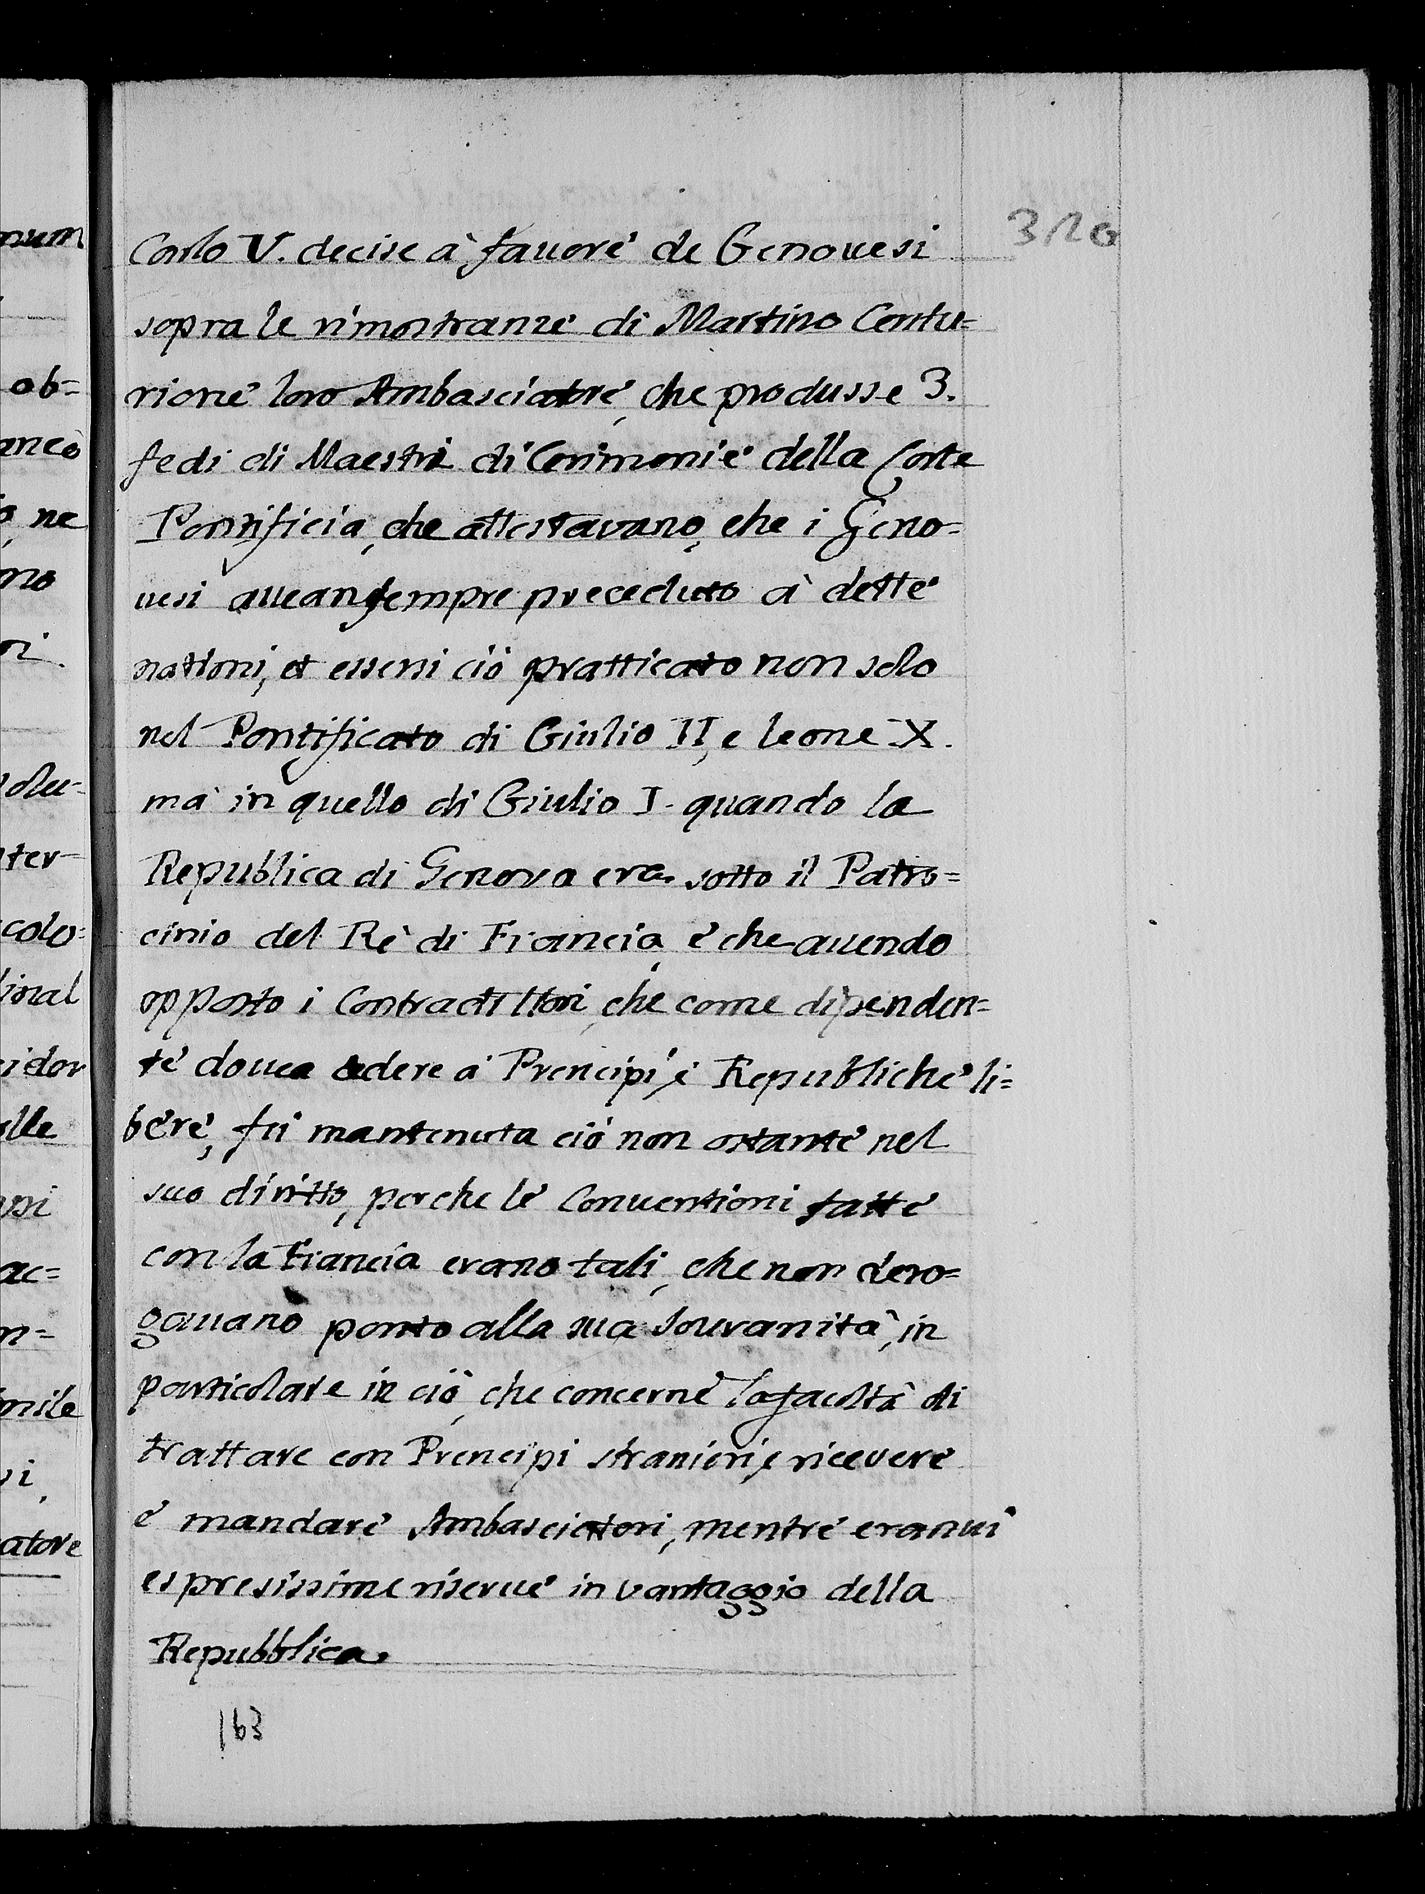 320
Carlo V. decise à fauore de Genouesi
sopra le rimostranze di Martino Centu=
rione loro Ambasciatore, che produsse 3.
fedi di Maestri di Cerimonie della Corte
Pontificia, che attestavano, che i Geno=
uesi auean sempre preceduto à dette
nationi, et essersi ciò pratticato non solo
nel Pontificato di Giulio II, e leone X.
ma in quello di Giulio I. quando la
Republica di Genova era sotto il Patro=
cinio del Rè di Francia, e che auendo
opposto i Contradittori, che come dipenden=
te douea cedere a Prencipi, e Republiche li=
bere, fù mantenuta ciò non ostante nel
suo diritto, perche le Conuentioni fatte
con la Francia erano tali, che non dero=
gauano ponto alla sua Souranità, in
particolare in ciò, che concerne la facoltà di
trattare con Prencipi stranieri, e ricevere
e mandare Ambasciatori, mentre eranui
espresissime riserue in vantaggio della
Repubblica.
163
num
ob=
ne
ter=
colo=
idor
ac=
n=
atore